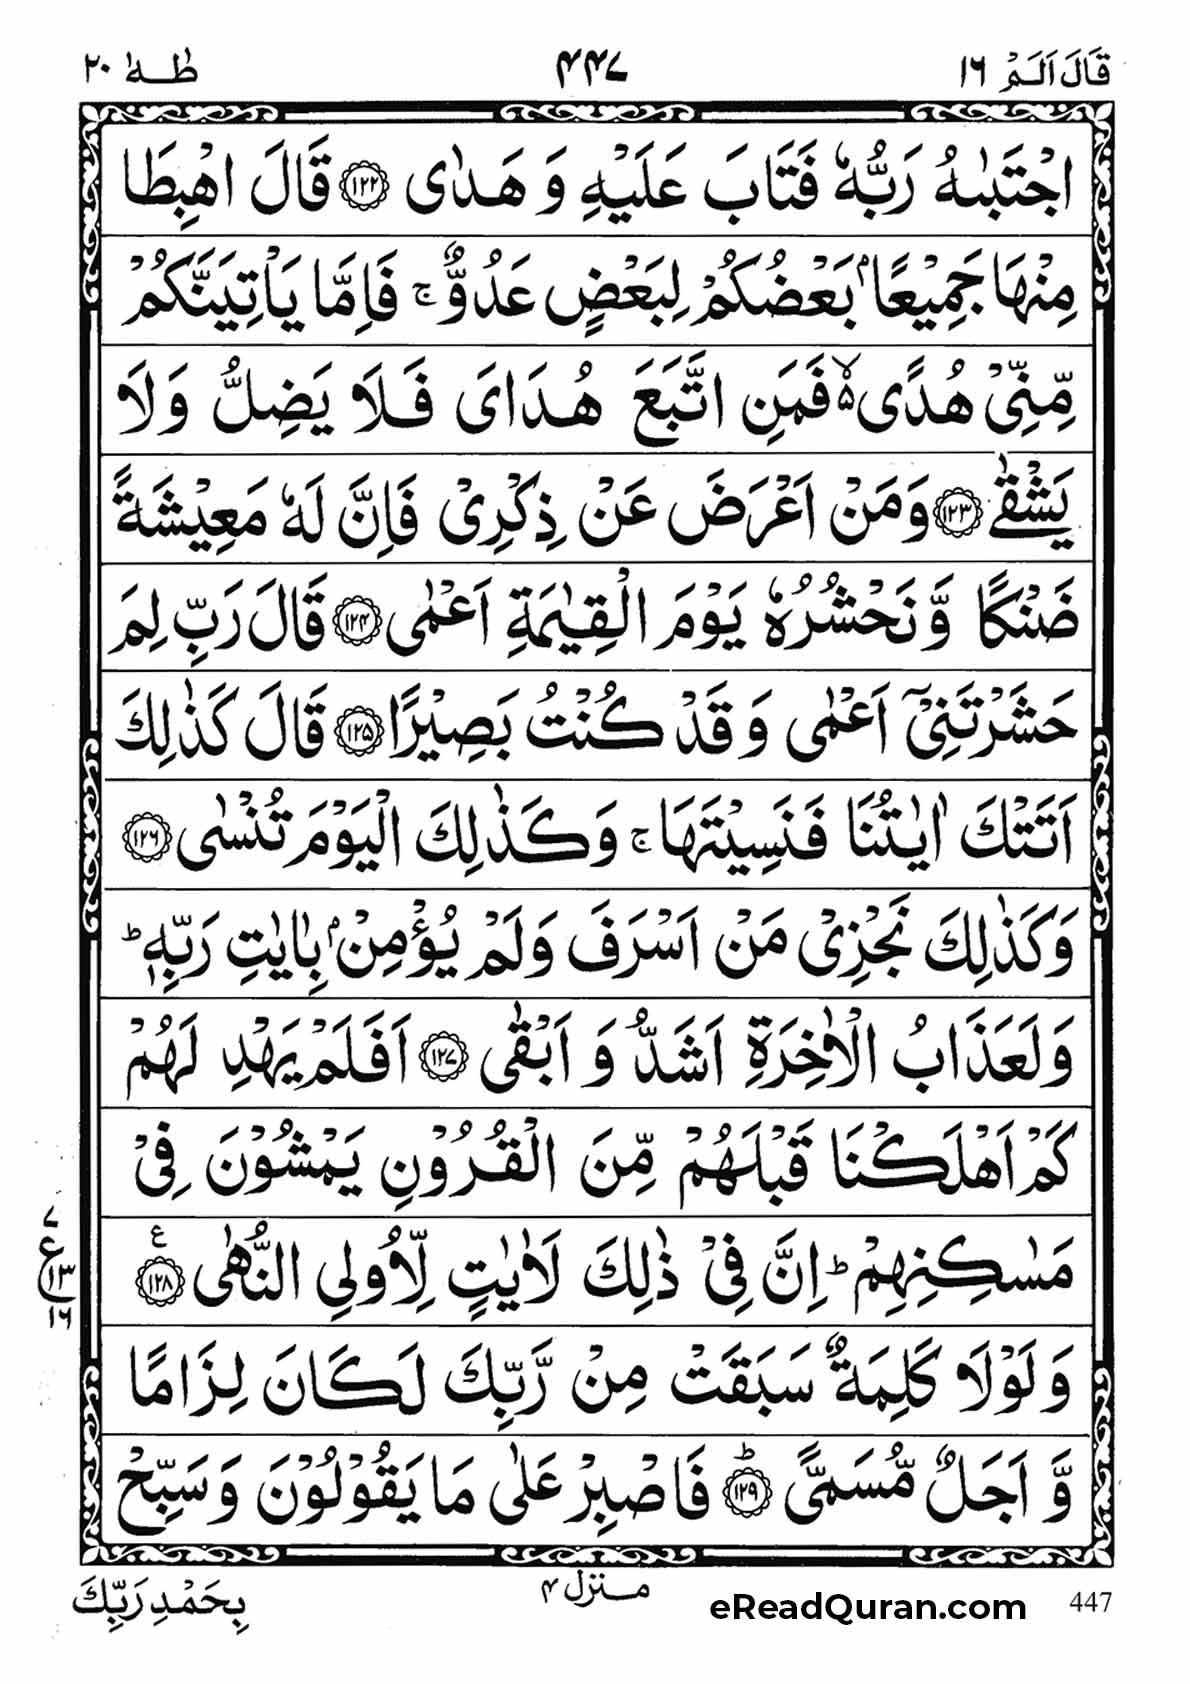 قَالَ اَلَمْ ١٦ ۴۴۷ طٰهٰ ٢٠
اجْتَبٰىهُ رَبُّهٗ فَتَابَ عَلَيْهِ وَ هَدٰى ﴿۱۲۲﴾ قَالَ اهْبِطَا
مِنْهَا جَمِيْعًۢا بَعْضُكُمْ لِبَعْضٍ عَدُوٌّ ۚ فَاِمَّا يَاْتِيَنَّكُمْ
مِّنِّيْ هُدًى ۙ۬ فَمَنِ اتَّبَعَ هُدَايَ فَلَا يَضِلُّ وَلَا
يَشْقٰي ﴿۱۲۳﴾ وَمَنْ اَعْرَضَ عَنْ ذِكْرِيْ فَاِنَّ لَهٗ مَعِيْشَةً
ضَنْكًا وَّ نَحْشُرُهٗ يَوْمَ الْقِيٰمَةِ اَعْمٰى ﴿۱۲۴﴾ قَالَ رَبِّ لِمَ
حَشَرْتَنِيْۤ اَعْمٰى وَ قَدْ كُنْتُ بَصِيْرًا ﴿۱۲۵﴾ قَالَ كَذٰلِكَ
اَتَتْكَ اٰيٰتُنَا فَنَسِيْتَهَا ۚ وَ كَذٰلِكَ الْيَوْمَ تُنْسٰى ﴿۱۲۶﴾
وَ كَذٰلِكَ نَجْزِيْ مَنْ اَسْرَفَ وَ لَمْ يُؤْمِنْۢ بِاٰيٰتِ رَبِّهٖ ؕ
وَ لَعَذَابُ الْاٰخِرَةِ اَشَدُّ وَ اَبْقٰى ﴿۱۲۷﴾ اَفَلَمْ يَهْدِ لَهُمْ
كَمْ اَهْلَكْنَا قَبْلَهُمْ مِّنَ الْقُرُوْنِ يَمْشُوْنَ فِيْ
مَسٰكِنِهِمْ ؕ اِنَّ فِيْ ذٰلِكَ لَاٰيٰتٍ لِّاُولِي النُّهٰى ﴿۱۲۸﴾ ع
٧ ع ١٣ ١٦
وَ لَوْلَا كَلِمَةٌ سَبَقَتْ مِنْ رَّبِّكَ لَكَانَ لِزَامًا
وَّ اَجَلٌ مُّسَمًّى ﴿۱۲۹﴾ ؕ فَاصْبِرْ عَلٰى مَا يَقُوْلُوْنَ وَ سَبِّحْ
بِحَمْدِ رَبِّكَ
منزل ۴
eReadQuran.com 447